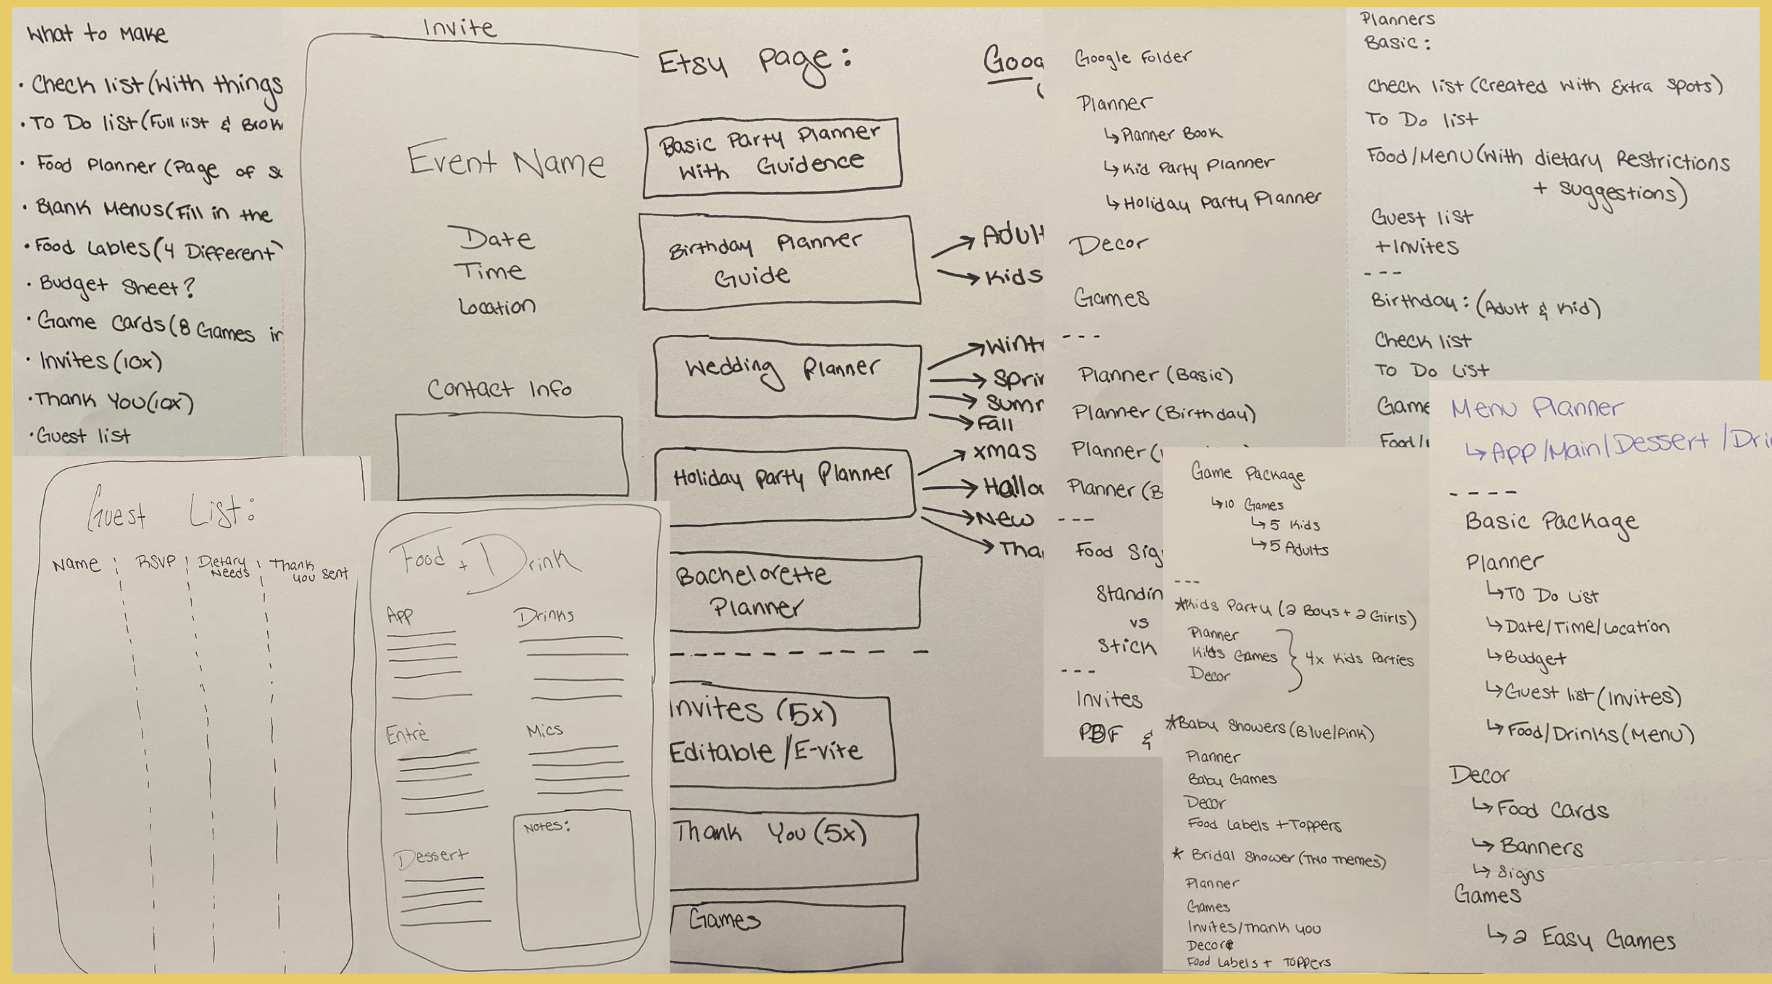 What to Make
• Check list (With things
• To Do list (Full list & Brok
• Food Planner (Page of
• Blank Menus (Fill in the
• Food Lables (4 Different
• Budget Sheet?
• Game Cards (8 Games in
• Invites (10x)
• Thank You (10x)
• Guest list
Invite
Event Name
Date
Time
Location
Contact Info
Guest List:
Name
RSVP
Dietary
Needs
Thank
you sent
Food + Drink
App
Drinks
Entrè
Mics
Dessert
Notes:
Etsy Page:
Goog
Basic Party Planner
With Guidence
Birthday Planner
Guide
Adult
Kids
Wedding Planner
Wint
Sprin
Summ
Fall
Holiday Party Planner
xmas
Hallo
New
Tha
Bachelorette
Planner
Invites (5x)
Editable/E-vite
Thank You (5x)
Games
Google Folder
Planner
↳ Planner Book
↳ Kid Party Planner
↳ Holiday Party Planner
Decor
Games
---
Planner (Basic)
Planner (Birthday)
Planner (
Planner (B
---
Food Sig
Standin
vs
Stick
---
Invites
PDF &
Planners
Basic:
Check list (Created With Extra Spots)
To Do list
Food/Menu (With dietary Restrictions
+ suggestions)
Guest list
+Invites
---
Birthday: (Adult & Kid)
Check list
To Do List
Game
Food/
Game Package
↳ 10 Games
↳ 5 Kids
↳ 5 Adults
---
*Kids Party (2 Boys + 2 Girls)
Planner
Kids Games } 4x Kids Parties
Decor
*Baby Showers (Blue/Pink)
Planner
Baby Games
Decor
Food Labels + Toppers
* Bridal Shower (Two Themes)
Planner
Games
Invites/Thank you
Decor
Food Labels + Toppers
Menu Planner
↳ App/Main/Dessert/Dri
----
Basic Package
Planner
↳ To Do List
↳ Date/Time/Location
↳ Budget
↳ Guest list (Invites)
↳ Food/Drinks (Menu)
Decor
↳ Food Cards
↳ Banners
↳ Signs
Games
↳ 2 Easy Games